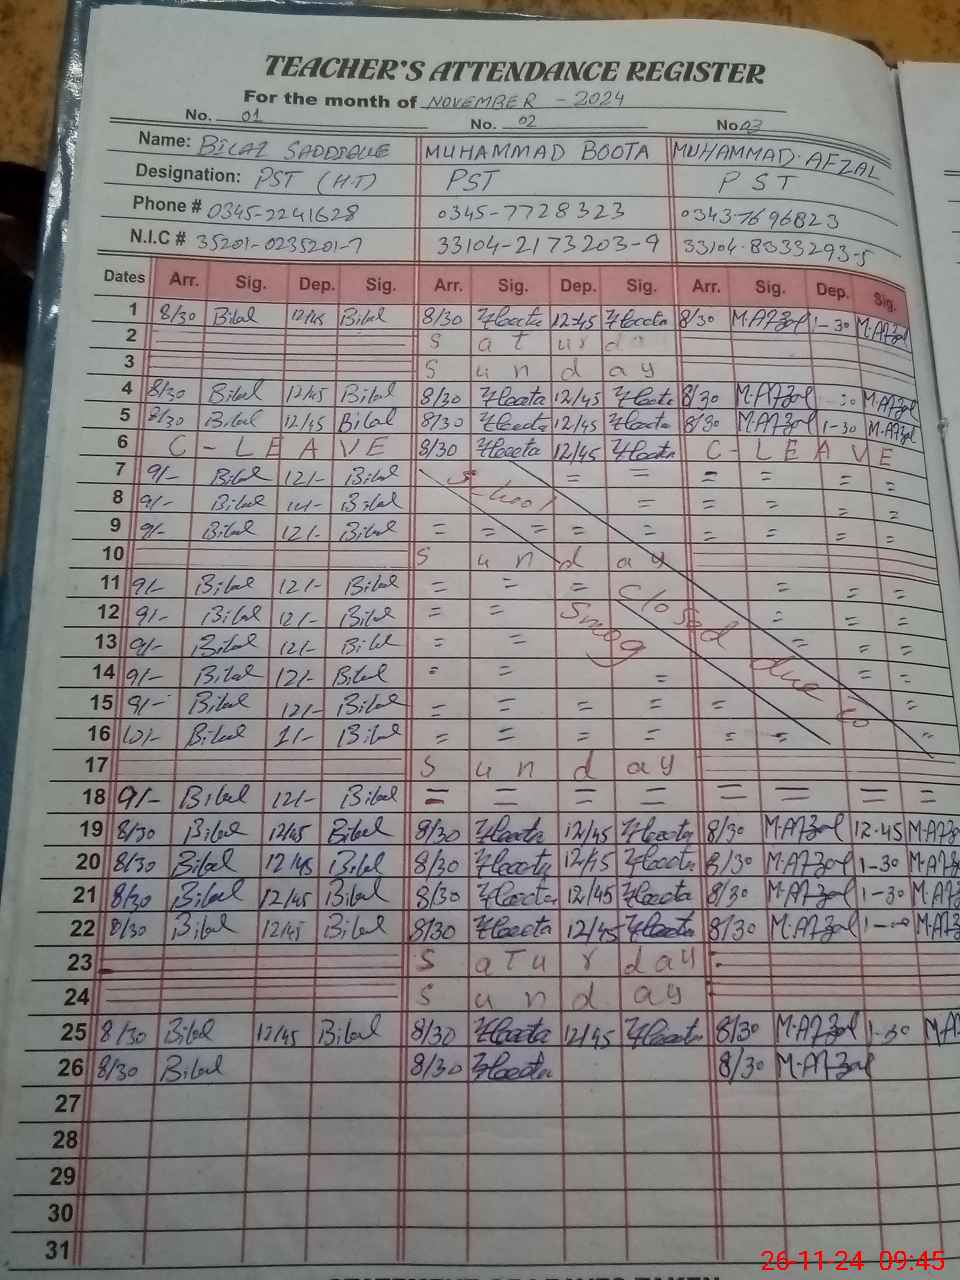 TEACHER'S ATTENDANCE REGISTER
For the month of NOVEMBER - 2024
No. 01 No. 02 No 03
Name: BILAL MUHAMMAD BOOTA MUHAMMAD. AFZAL
Designation: PST (H.T) PST PST
Phone # 0345-2241628 0345-7728323 0343-7696823
N.I.C # 35201-0235201-7 33104-2173203-9 33104-8333293-5
Dates Arr. Sig. Dep. Sig. Arr. Sig. Dep. Sig. Arr. Sig. Dep. Sig.
1 8/30 Bilal 12/45 Bilal 8/30 Hoota 12-45 Hoota 8/30 M.AfZal 1-30 M.AfZal
2 Saturda
3 Sunday
4 8/30 Bilal 12/45 Bilal 8/30 Hoota 12/45 Hoota 8/30 M.AfZal M.AfZal
5 8/30 Bilal 12/45 Bilal 8/30 Hoota 12/45 Hoota 8/30 M.AfZal 1-30 M.AfZal
6 C-LEAVE 8/30 Hoota 12/45 Hoota C-LEAVE
7 9/- Bilal 12/- Bilal School = = = = = =
8 9/- Bilal Bilal = = = = =
9 9/- Bilal 12/- Bilal = = = = = = = = =
10 Sunday
11 9/- Bilal 12/- Bilal = = = closed = = =
12 9/- Bilal 12/- Bilal = = Smog = = =
13 9/- Bilal 12/- Bilal = = = = =
14 9/- Bilal 12/- Bilal = = = due = =
15 9/- Bilal 12/- Bilal = = = = = = to =
16 10/- Bilal 1/- Bilal = = = = = = =
17 Sunday
18 9/- Bilal 12/- Bilal = = = = = = = =
19 8/30 Bilal 12/45 Bilal 8/30 Hoota 12/45 Hoota 8/30 M.AfZal 12.45 M.AfZ
20 8/30 Bilal 12/45 Bilal 8/30 Hoota 12/45 Hoota 8/30 M.AfZal 1-30 M.AfZ
21 8/30 Bilal 12/45 Bilal 8/30 Hoota 12/45 Hoota 8/30 M.AfZal 1-30 M.AfZ
22 8/30 Bilal 12/45 Bilal 8/30 Hoota 12/45 Hoota 8/30 M.AfZal M.AfZ
23 Saturday
24 Sunday
25 8/30 Bilal 12/45 Bilal 8/30 Hoota 12/45 Hoota 8/30 M.AfZal 1-30 M.Af
26 8/30 Bilal 8/30 Hoota 8/30 M.AfZal
27
28
29
30
31
26-11-24 09:45